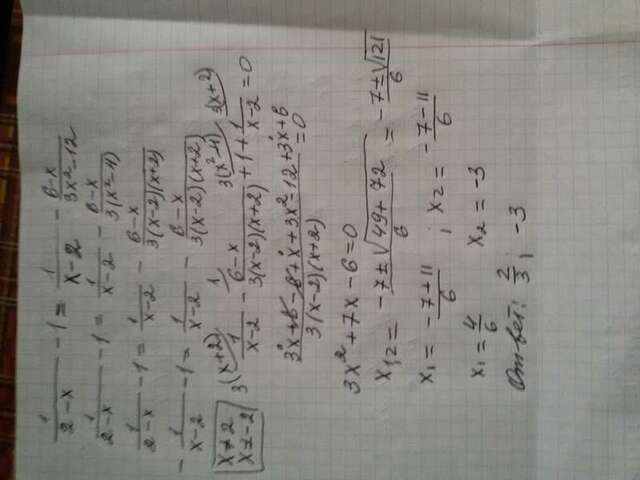 1/(2-x) - 1 = 1/(x-2) - (6-x)/(3x²-12)
1/(2-x) - 1 = 1/(x-2) - (6-x)/(3(x²-4))
1/(2-x) - 1 = 1/(x-2) - (6-x)/(3(x-2)(x+2))
- 1/(x-2) - 1 = 1/(x-2) - (6-x)/(3(x-2)(x+2))
x≠2
x≠-2
3(x+2) 1/(x-2) - 1/ (6-x)/(3(x-2)(x+2)) 3(x²-4)/ + 1 + 3(x+2)/ 1/(x-2) = 0
(3x+6-6+x+3x²-12+3x+6)/(3(x-2)(x+2)) = 0
3x²+7x-6=0
x₁,₂ = (-7±√(49+72))/6 = (-7±√121)/6
x₁ = (-7+11)/6 ; x₂ = (-7-11)/6
x₁ = 4/6 x₂ = -3
Ответ: 2/3 ; -3